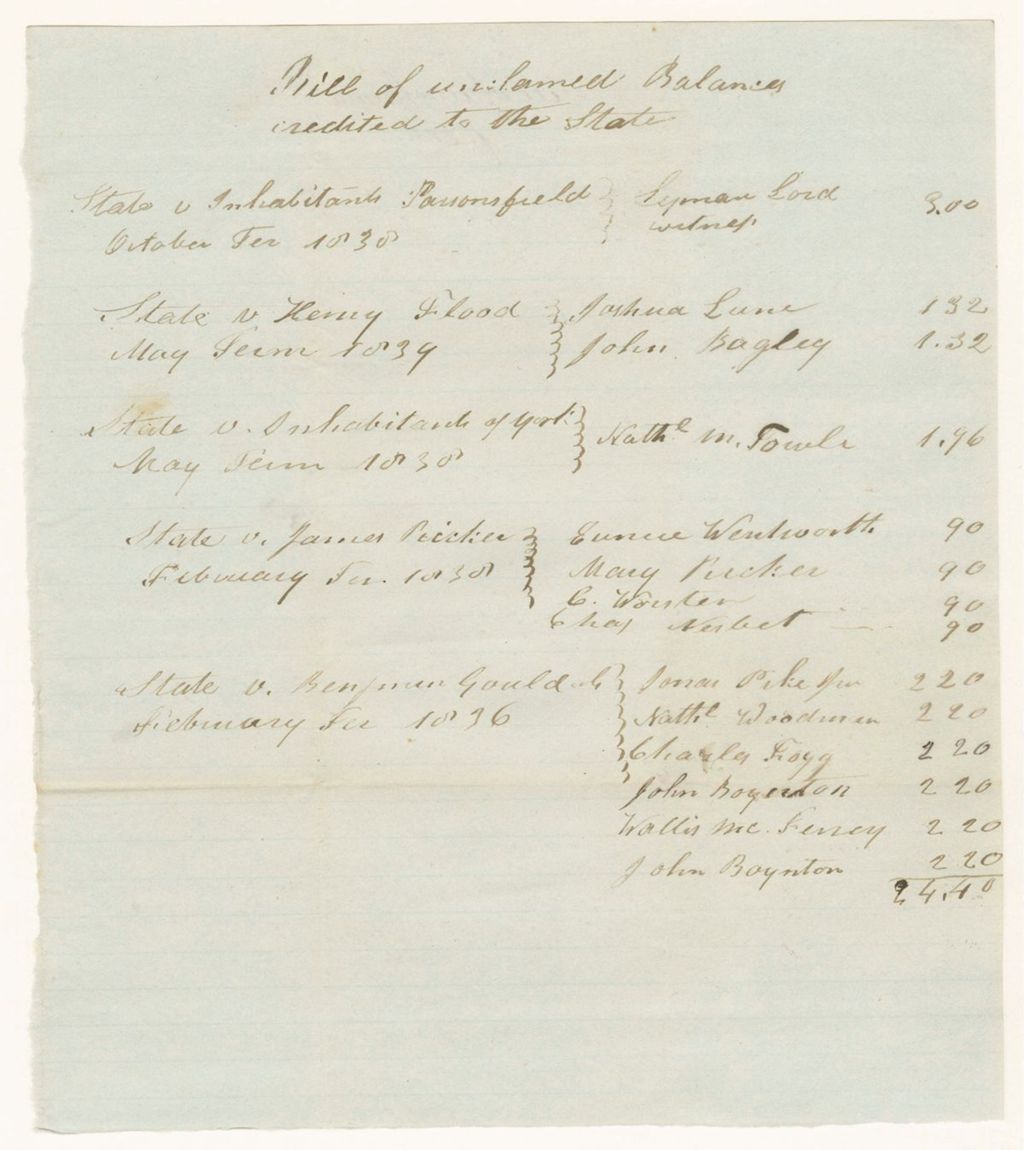 Bill of unclamed Balances
credited to the State
State v Inhabitants Parsonsfield Lyman Lord 3.00
October Ter 1838 witness
State v. Henry Flood Joshua Lune 1 32
May Term 1839 John Bagley 1.32
State v. Inhabitants of York Nathl M. Towle 1.96
May Term 1838
State v. James Ricker Eunice Wentworth 90
February Ter. 1838 Mary Ricker 90
C. Worster 90
Chas Nesbet 90
State v. Benjman Gould Jonas Pike Jnr 2 20
February Ter 1836 Nathl Woodman 2 20
Charles Fogg 2 20
John Boyenton 2 20
Wallis Mc. Kenney 2 20
John Boynton 2 20
24.40